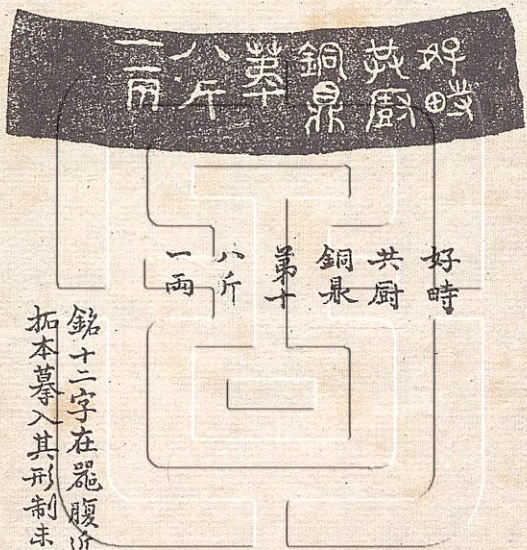 好畤
共廚
銅鼎
第十
八斤
一兩
好時
共厨
銅鼎
第十
八斤
一兩
銘十二字在噐腹近
拓本摹入其形制未